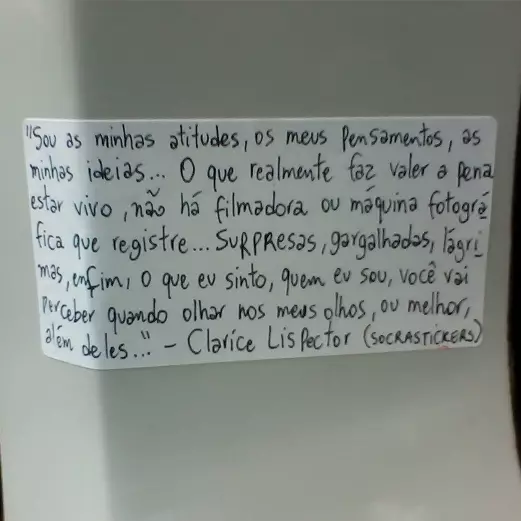 "Sou as minhas atitudes, os meus pensamentos, as
minhas ideias... O que realmente faz valer a pena
estar vivo, não há filmadora ou máquina fotográ
fica que registre... SURPRESAS, gargalhadas, lágri
mas, enfim, o que eu sinto, quem eu sou, você vai
perceber quando olhar nos meus olhos, ou melhor,
além deles..." - Clarice Lispector (SOCRASTICKERS)